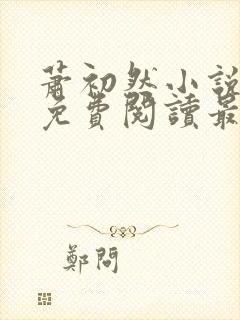 蕭初然小說
免費閱讀最
鄭問